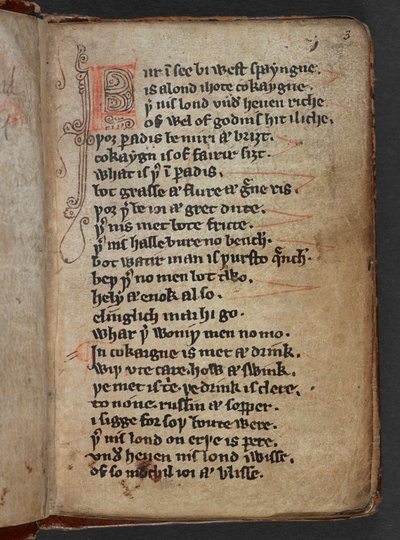 3
Fur ī see bi west spayngne.
is a lond ihote cokaygne.
þ̛ nis lond vnd̛ heuen riche
of wel of godnis hit iliche.
þoȝ p̱adis be miri ⁊ briȝt.
cokaygn is of fairir siȝt.
what is þ̛ ī p̱adis.
bot grasse ⁊ flure ⁊ g̛ne ris.
þoȝ þ̛ be ioi ⁊ gret dute.
þ̛ nis met bote frute.
þ̛ nis halle bure no bench̛.
bot watir man is þursto q̛nch̛.
beþ þ̛ no men bot two.
hely ⁊ enok also.
elinglich mai hi go.
whar þ̛ woniþ men no mo.
In cokaigne is met ⁊ drink.
wiþ vte care. how ⁊ swink.
þe met is t̛e. þe drink is clere.
to none. russin ⁊ sopper.
i sigge for soþ boute were.
þ̛ nis lond on erþe is pere.
vnd̛ heuen nis lond iwisse.
of so mochil ioi ⁊ blisse.